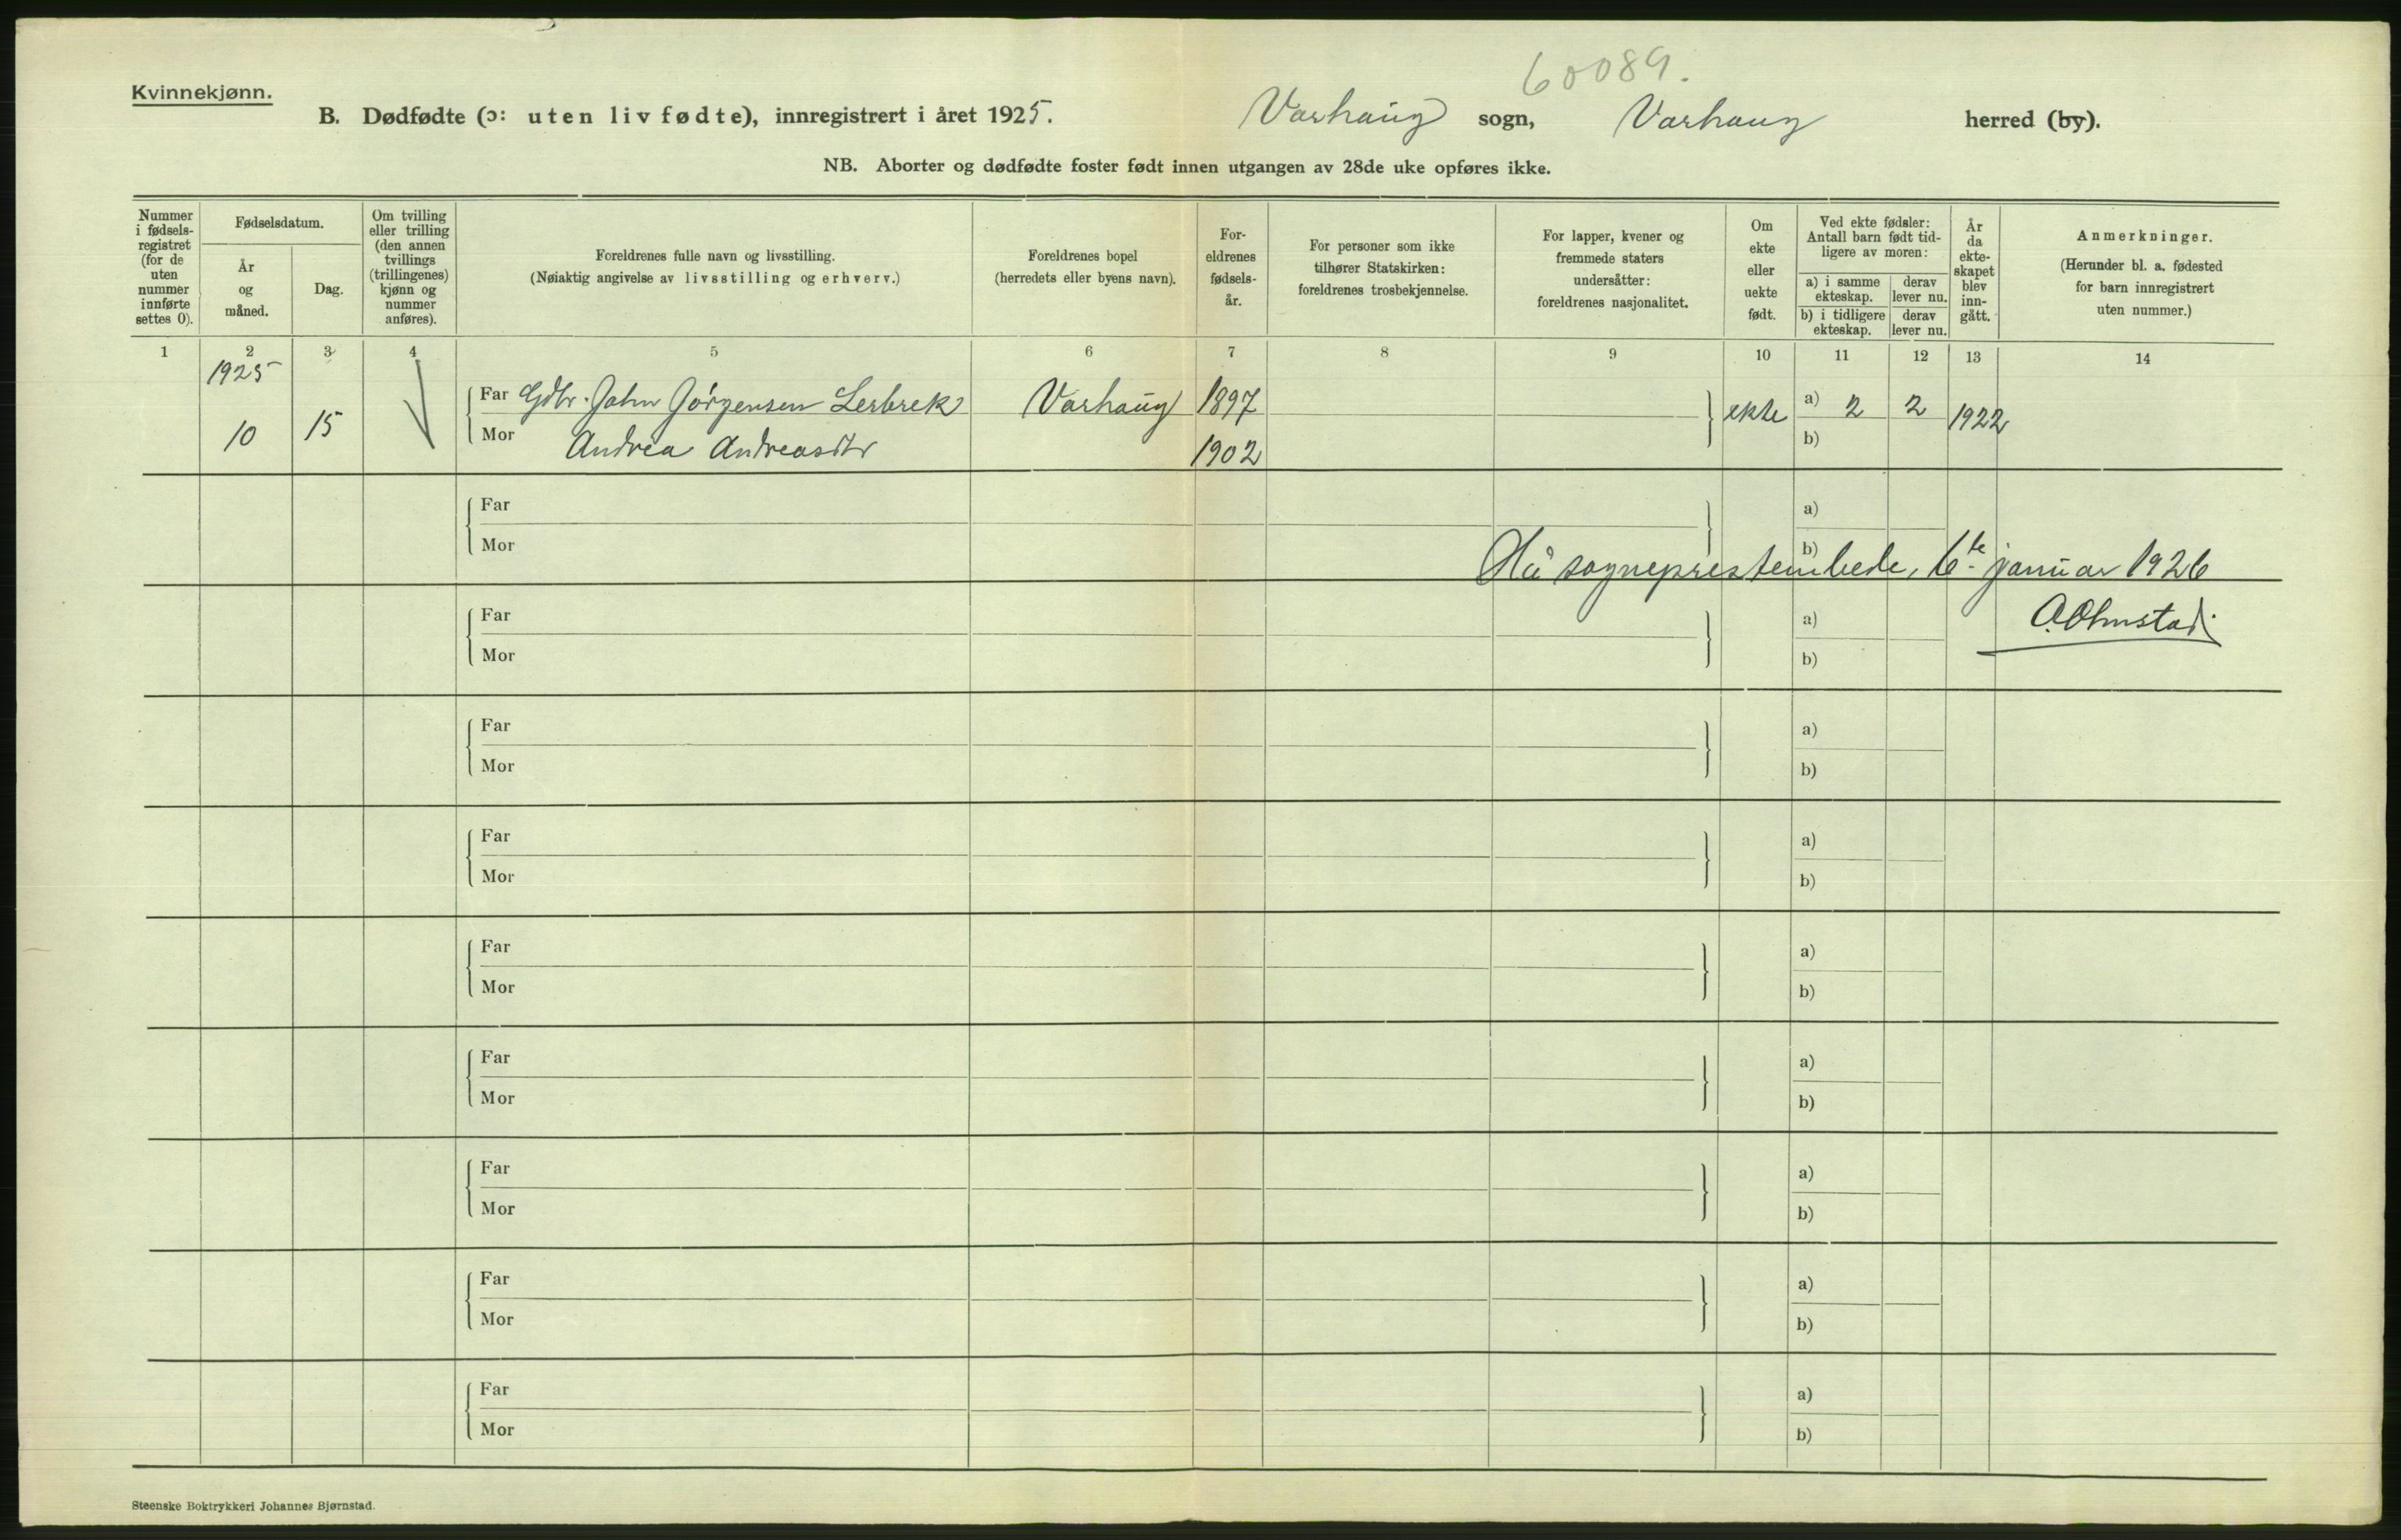 60089.
Kvinnekjønn.
B. Dødfødte (ɔ: uten liv fødte), innregistrert i året 1925. Varhaug sogn, Varhaug herred (by).
NB. Aborter og dødfødte foster født innen utgangen av 28de uke opføres ikke.
Nummer
i fødsels-
registret
(for de
uten
nummer
innførte
settes 0).
Fødselsdatum.
År
og
måned.
Dag.
Om tvilling
eller trilling
(den annen
tvillings
(trillingenes)
kjønn og
nummer
anføres).
Foreldrenes fulle navn og livsstilling.
(Nøiaktig angivelse av livsstilling og erhverv.)
Foreldrenes bopel
(herredets eller byens navn).
For-
eldrenes
fødsels-
år.
For personer som ikke
tilhører Statskirken:
foreldrenes trosbekjennelse.
For lapper, kvener og
fremmede staters
undersåtter:
foreldrenes nasjonalitet.
Om
ekte
eller
uekte
født.
Ved ekte fødsler:
Antall barn født tid-
ligere av moren:
a) i samme
ekteskap.
derav
lever nu.
b) i tidligere
ekteskap.
derav
lever nu.
År
da
ekte-
skapet
blev
inn-
gått.
Anmerkninger.
(Herunder bl. a. fødested
for barn innregistrert
uten nummer.)
1 2 3 4 5 6 7 8 9 10 11 12 13 14
1925
Far Gdbr. John Jørgensen Lerbrek Varhaug 1897 ekte a) 2 2 1922
10 15
Mor Andrea Andreasdtr 1902 b)
Far a)
Mor b)
Hå sogneprestembede, 6te januar 1926
A. Ohmstad
Far a)
Mor b)
Far a)
Mor b)
Far a)
Mor b)
Far a)
Mor b)
Far a)
Mor b)
Far a)
Mor b)
Far a)
Mor b)
Far a)
Mor b)
Steenske Boktrykkeri Johannes Bjørnstad.